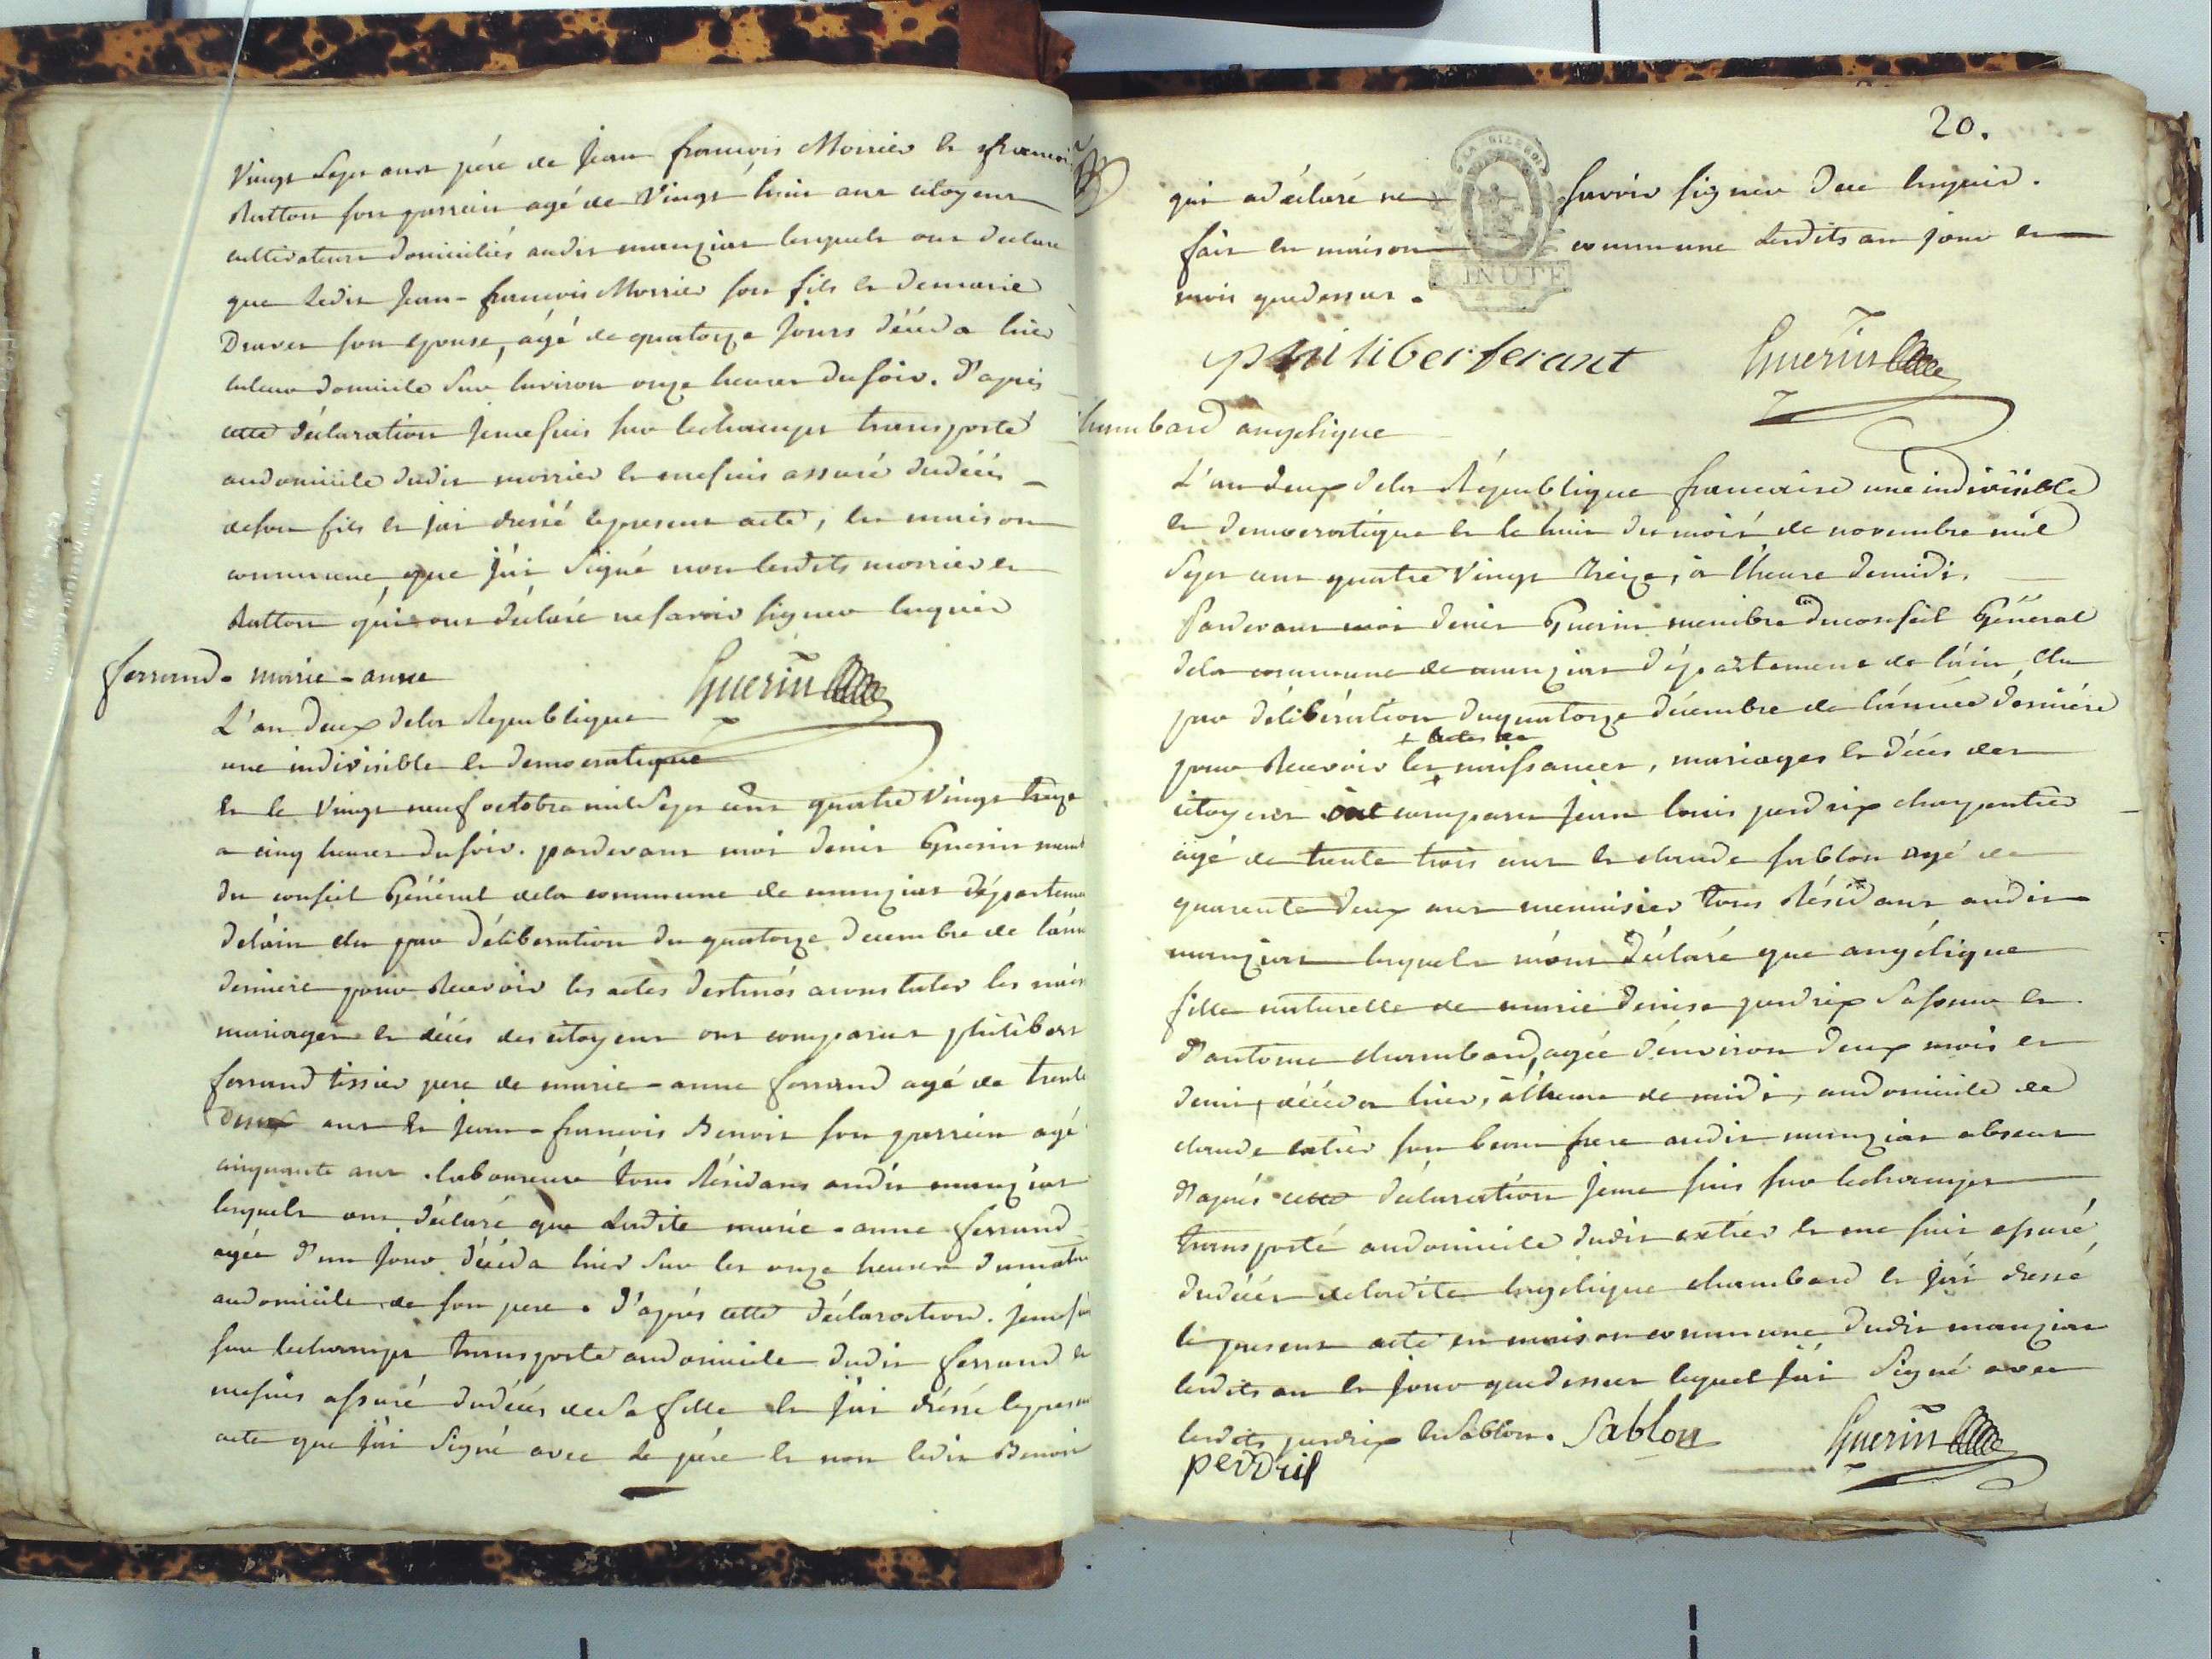 Vingt Sept ans père de Jean françois Morrier et françois
Ratton son parrain agé de Vingt huit ans citoyens
cultivateurs domiciliés audit manziat lesquels ont declaré
que ledit Jean-francois Morrier son fils et de marie
Dravet son epouse, agé de quatorze Jours décéda hier
en leur domicile Sur lenviron onze heures du soir. D'après
cette déclaration Je me suis sur le champs transporté
au domicile dudit morrier et me suis assuré du décès
de son fils et j'ai dressé le present acte, en maison
commune, que j'ai Signé non lesdits morrier et
Ratton qui ont déclaré ne savoir signer enquis
Guerin
ferrand. marie-anne
L'an Deux de la Republique
une indivisible et democratique
et le Vingt neuf octobre mil Sept cent quatre Vingt treize
a cinq heures du soir. pardevant moi denis Guerin memb
du conseil Général de la commune de manziat départeme
de lain elu par Délibération du quatorze decembre de l'ann
derniere pour Recevoir les actes destinés a constater les naiss
mariages et décès des citoyens ont comparus philibert
ferrand tissier pere de marie-anne ferrand agé de trente
Deux ans et Jean-francois Benoit son parrain agé
cinquante ans laboureur tous Résidans audit manziat
lesquels ont déclaré que Ladite marie-anne ferrand
agée d'un Jour décéda hier Sur les onze heures du matin
au domicile de son pere. D'après cette déclaration. je me s
sur le champs transporté au domicile dudit ferrand et
me suis assuré du décès de Sa fille et J'ai dréssé le presen
acte que J'ai Signé avec le pére et non ledit Benoit
20.
qui a déclaré ne savoir signer Due enquis.
fait en maison commune Lesdits an jour et
mois que dessus.
MINUTE
philiber ferant
Guerin
chambard angelique
L'an deux de la République francaise une indivisible
et democratique et le huit du mois de novembre mil
Sept cent quatre Vingt treize, à l'heure de midi.
Pardevant moi denis Guerin membre du conseil Général
de la commune de manziat département de l'ain elu
par délibération du quatorze décembre de l'année dérniére
+ actes de
pour Recevoir les naissances, mariages et décès des
citoyens ont comparu jean louis perdrix charpentier
agé de trente trois ans et claude sablon agé de
quarente deux ans menuisier tous Résidans audit
manziat lesquels m'ont déclaré que angélique
fille naturelle de marie denise perdrix Sa soeur et
d'antoine chambard, agée d'environ deux mois et
demi, décéda hier, à l'heure de midi, au domicile de
claude extier son beau frere audit manziat absent
d'après cette déclaration je me suis sur le champs
transporté au domicile dudit extier et me suis assuré
du décès de ladite angelique chambard et j'ai dressé
le present acte en maison commune dudit manziat
lesdits an et jour que dessus lequel j'ai Signé avec
lesdits perdrix et Sablon. Sablon
Guerin
perdrix